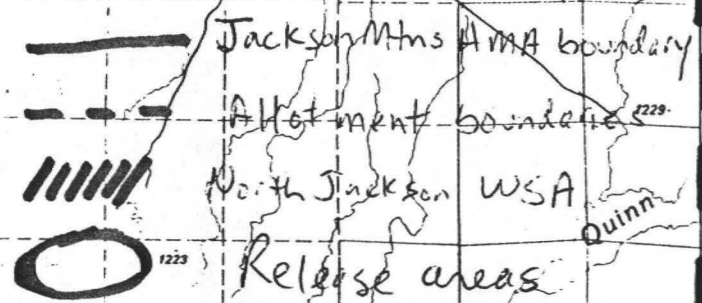 Jackson Mtns HMA boundary
Allotment boundaries
1229
North Jackson WSA
Quinn
1223
Release areas